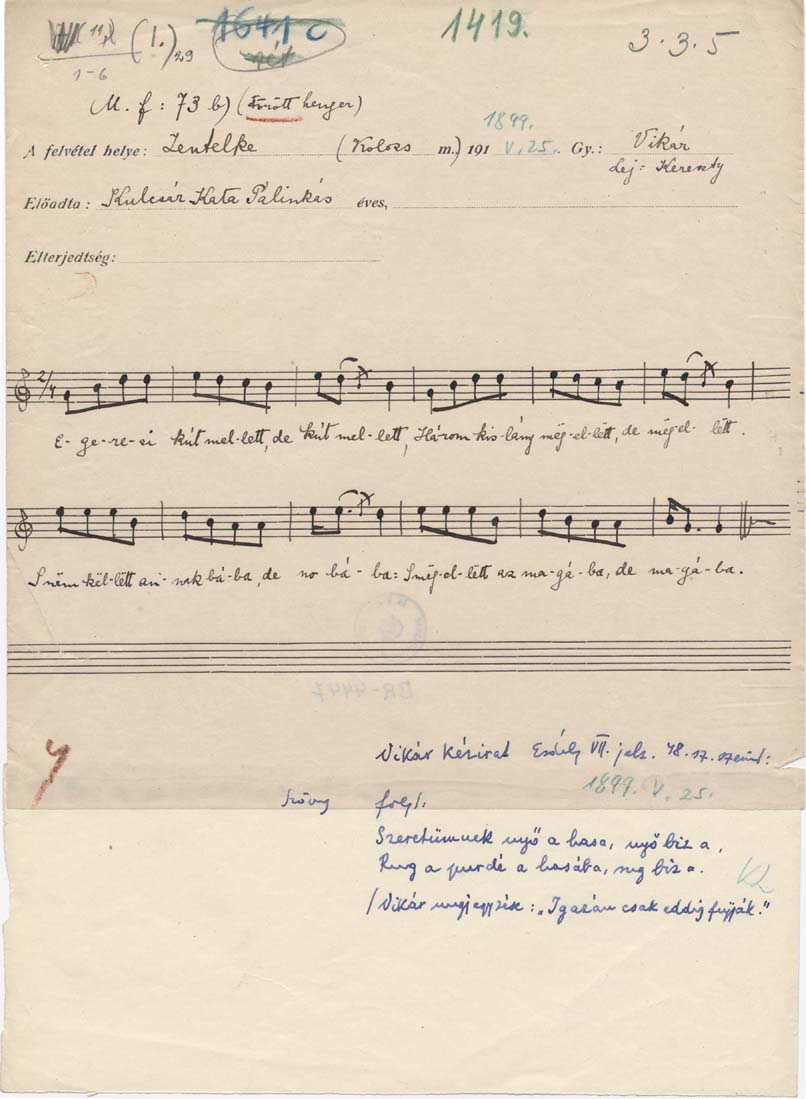 (1.) 29
1641 c
1419.
3.3.5
1-6
M. f: 73 b) (Törött henger)
1899.
A felvétel helye: Zentelke (Kolozs m.) 191 V. 25. Gy.: Vikár
Lej: Kereszty
Előadta: Kulcsár Kata Pálinkás éves,
Elterjedtség:
2/4
E- ge-re-si kút mel-lett, de kút mel-lett, Három kis-lány még-el-lëtt, de még-el-lëtt.
S nëm këllëtt an-nak bá-ba, de no bá-ba: S még-el-lëtt az ma-gá-ba, de ma-gá-ba.
BR-4447
Vikár kézirat Erdély VII. jelz. 48. sz. szerint:
1899. V. 25.
Szöveg folyt:
Szeretümnek nyő a hasa, nyő biz a,
Rug a purdé a hasába, rug biz a.
/Vikár megjegyzése: "Igazán csak eddig fujják."